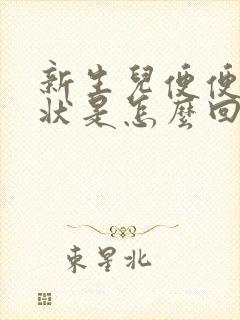 新生兒便便
狀是怎麼回
東星北